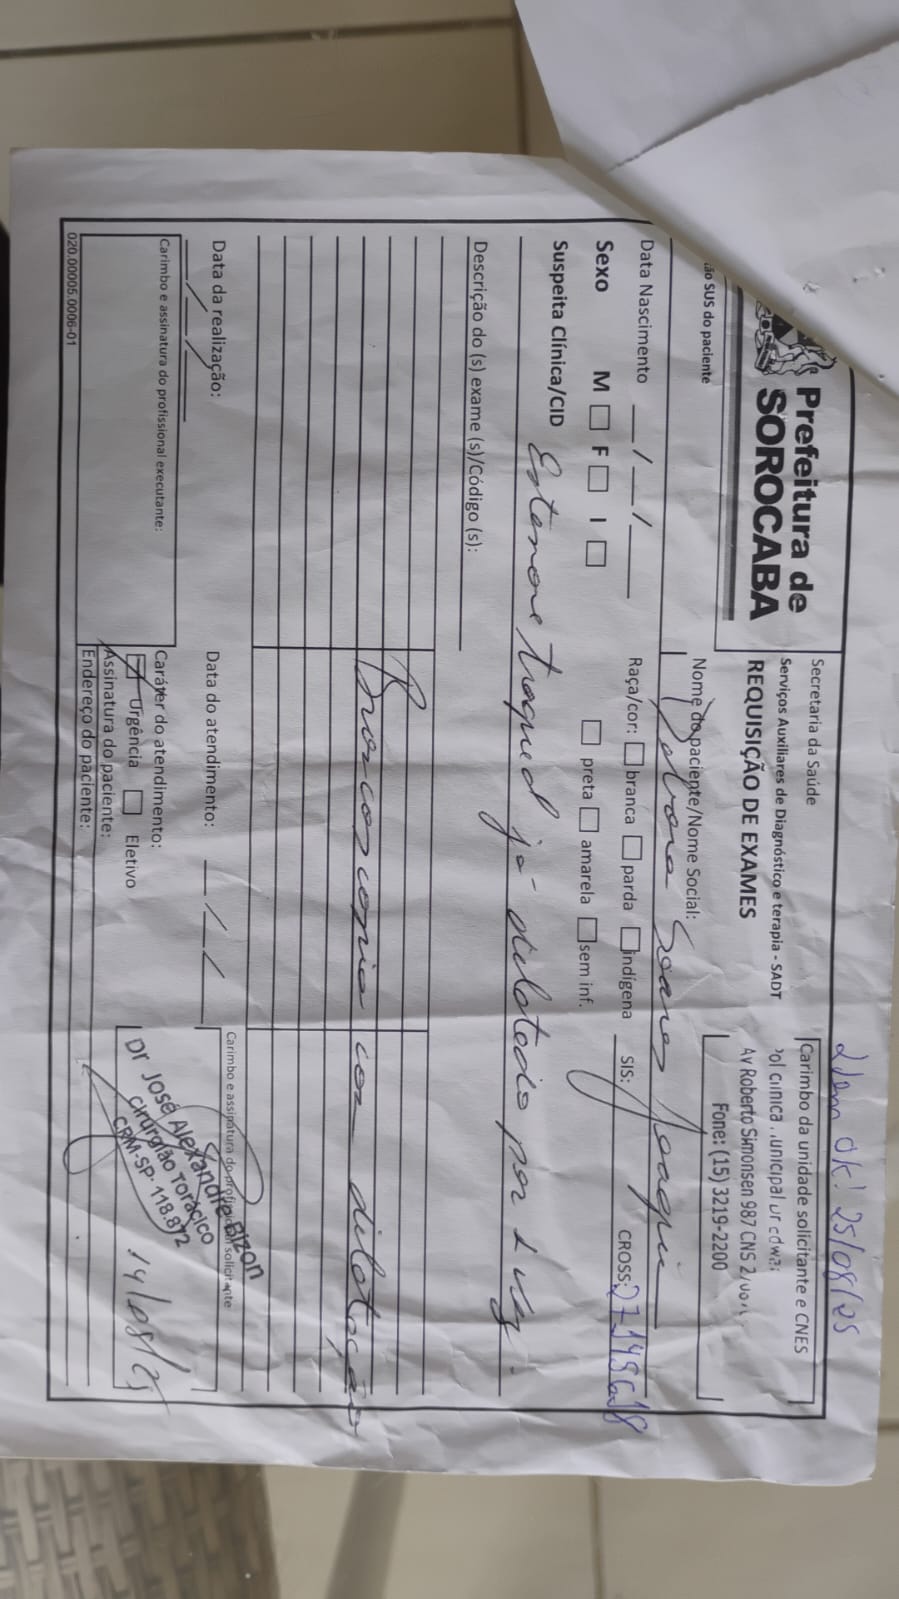 Idema OK! 25/08/25
Prefeitura de
SOROCABA
Secretaria da Saúde
Serviços Auxiliares de Diagnóstico e terapia - SADT
REQUISIÇÃO DE EXAMES
Carimbo da unidade solicitante e CNES
Av Roberto Simonsen 987 CNS
Fone: (15) 3219-2200
ão SUS do paciente
Nome do paciente/Nome Social:
Soares Joaquim
Data Nascimento __/__/__
Raça/cor: branca parda indígena
SIS:
CROSS:
Sexo M F I
preta amarela sem inf.
Suspeita Clínica/CID Estenose traqueal já dilatado por 1 vez.
Descrição do (s) exame (s)/Código (s):
Broncoscopia com dilatação
Data da realização:
__/__/__
Data do atendimento: __/__/__
Carimbo e assinatura do profissional solicitante
Dr José Alexandre Pizon
Cirurgião Torácico
CRM-SP: 118.872
14/08/25
Carimbo e assinatura do profissional executante:
Caráter do atendimento:
Urgência Eletivo
Assinatura do paciente:
Endereço do paciente:
020.00005.0006-01